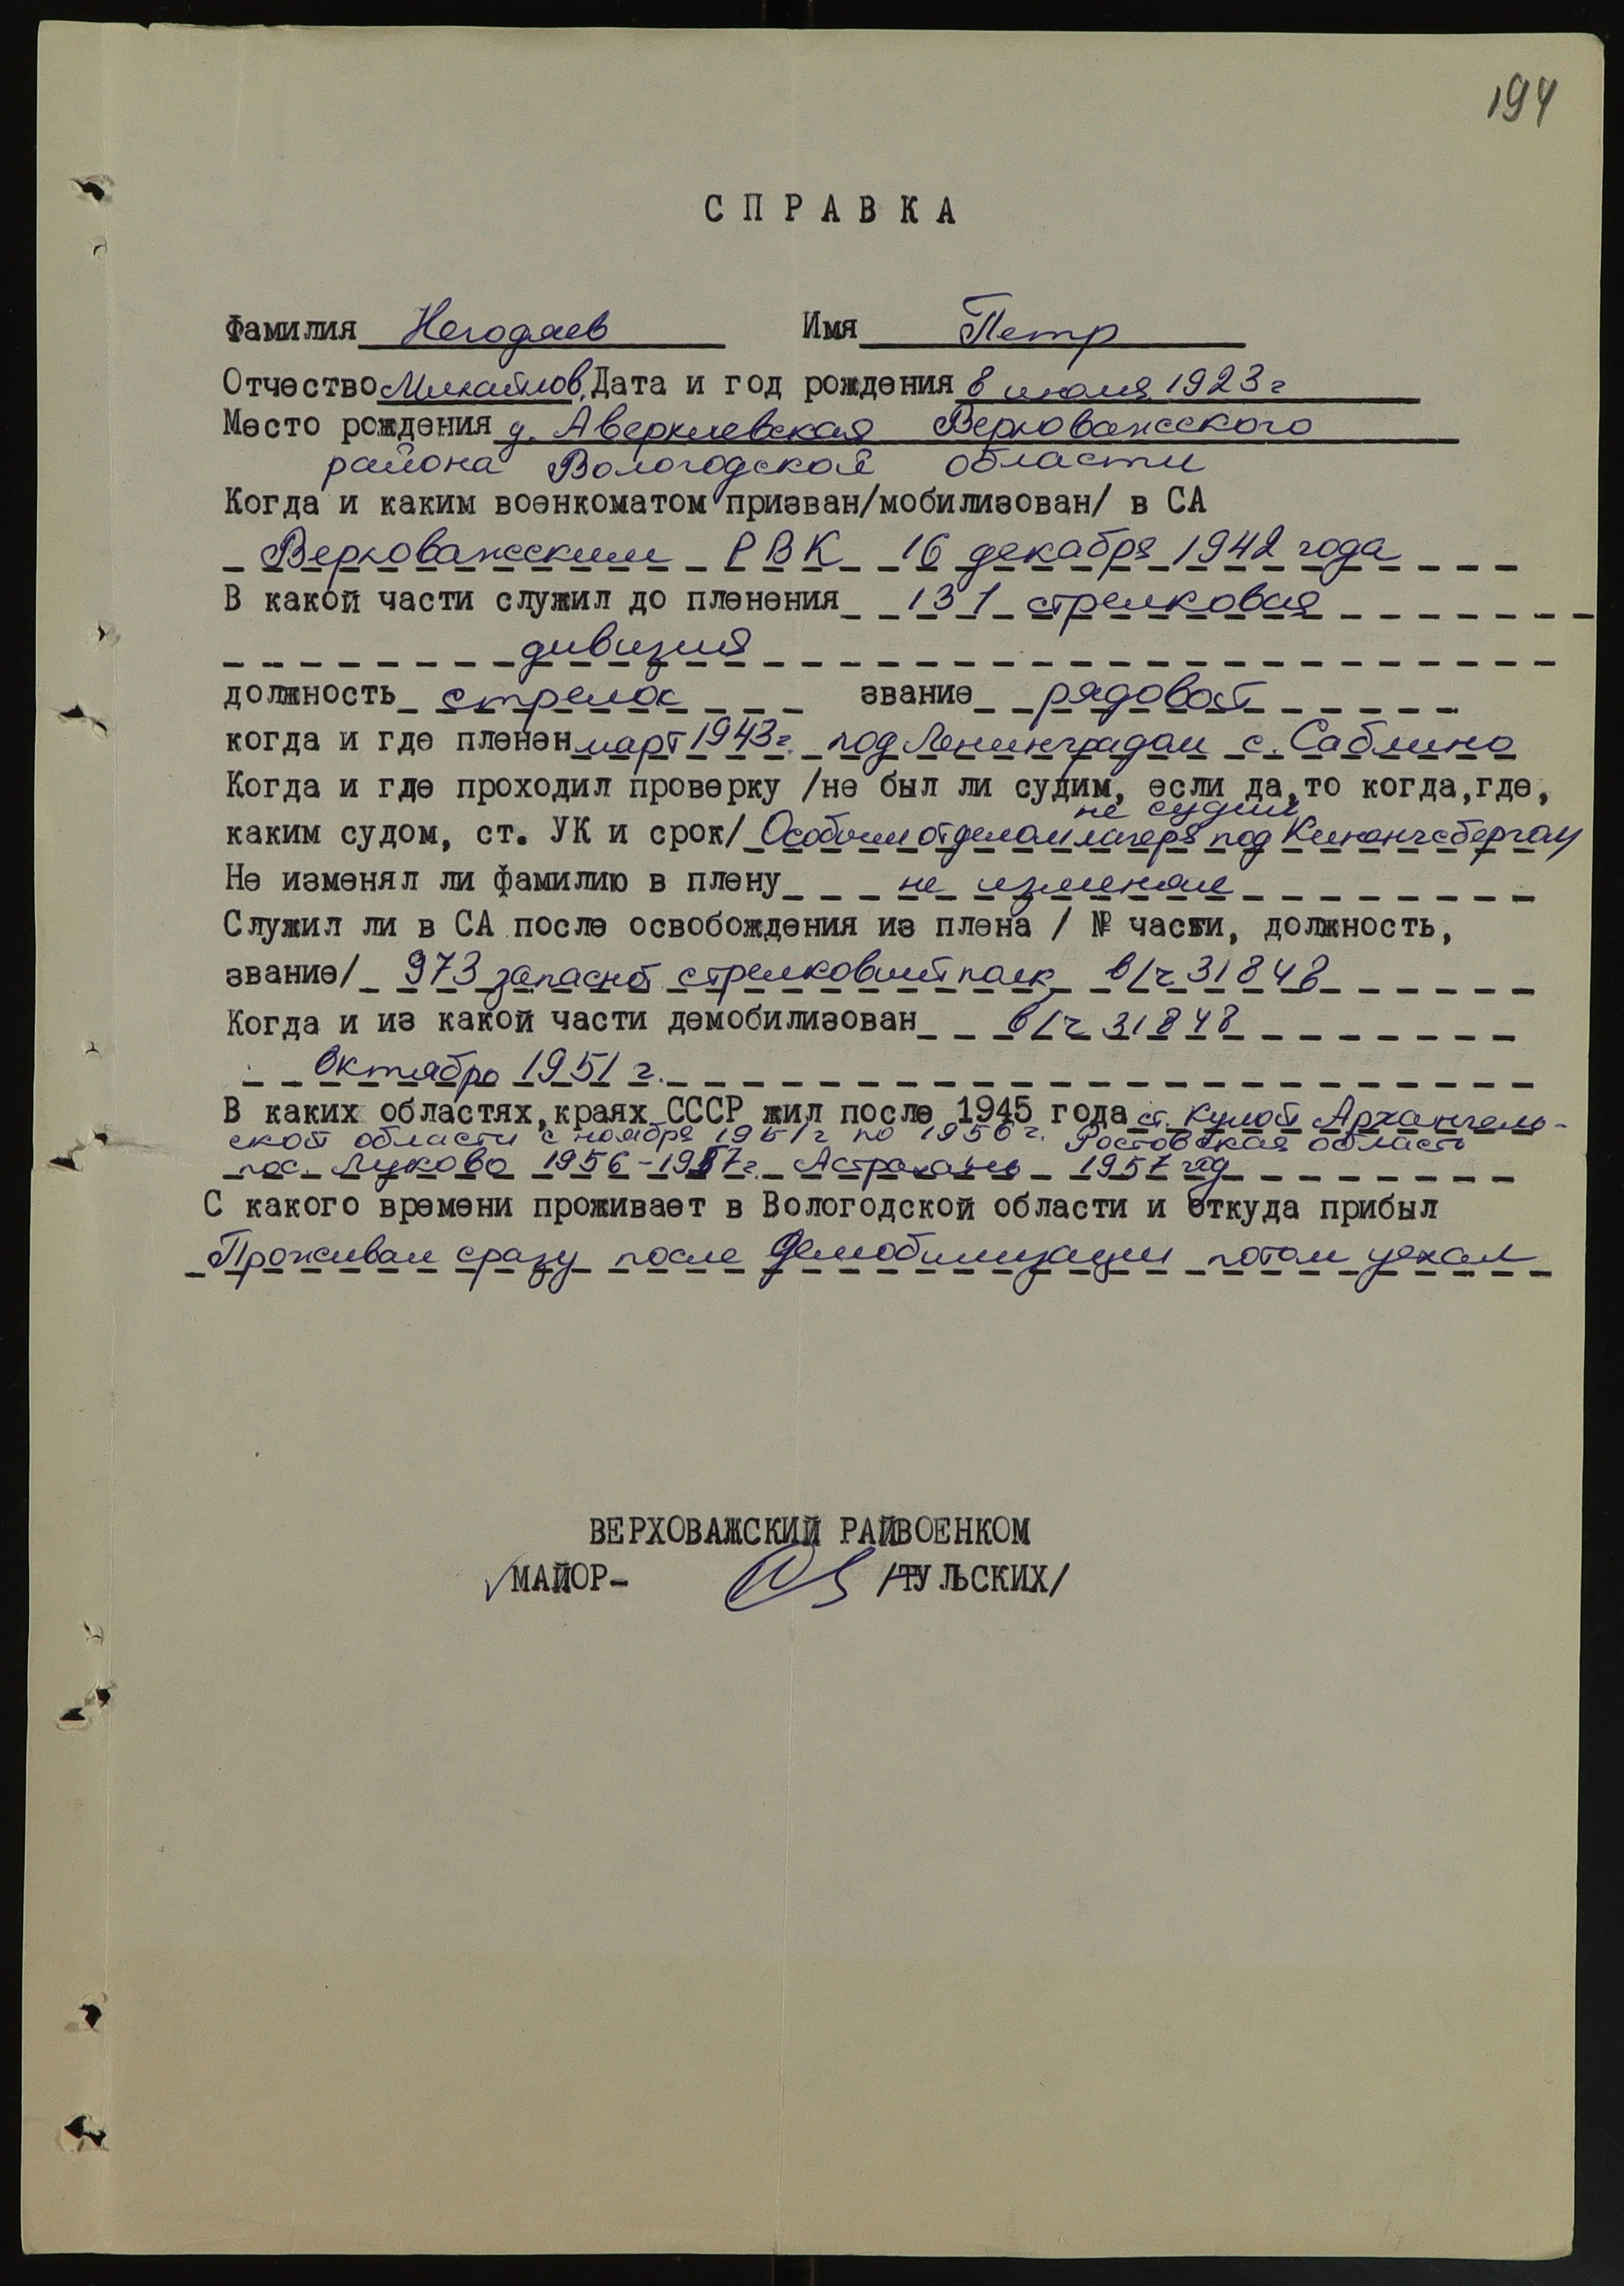 194
СПРАВКА
Фамилия Негодяев Имя Петр
Отчество Михайлов. Дата и год рождения 8 июля 1923 г
Место рождения д. Аверкиевская Верховажского
района Вологодской области
Когда и каким военкоматом призван/мобилизован/ в СА
Верховажским РВК 16 декабря 1942 года
В какой части служил до пленения 131 стрелковая
дивизия
должность стрелок звание рядовой
когда и где пленен март 1943 г. под Ленинградом с. Саблино
Когда и где проходил проверку /не был ли судим, если да, то когда, где,
не судим
каким судом, ст. УК и срок/ Особым отделом лагеря под Кинингсбергом
Не изменял ли фамилию в плену не изменял
Служил ли в СА после освобождения из плена / № части, должность,
звание/ 973 запасной стрелковый полк в/ч 31848
Когда и из какой части демобилизован в/ч 31848
октябрь 1951 г.
В каких областях, краях СССР жил после 1945 года ст. Кулой Архангель-
ской области с ноября 1951 г по 1956 г. Ростовская область
пос. Луково 1956-1957 г. Астрахань 1957 год
С какого времени проживает в Вологодской области и откуда прибыл
Проживал сразу после демобилизации потом уехал
ВЕРХОВАЖСКИЙ РАЙВОЕНКОМ
МАЙОР- /ТУЛЬСКИХ/